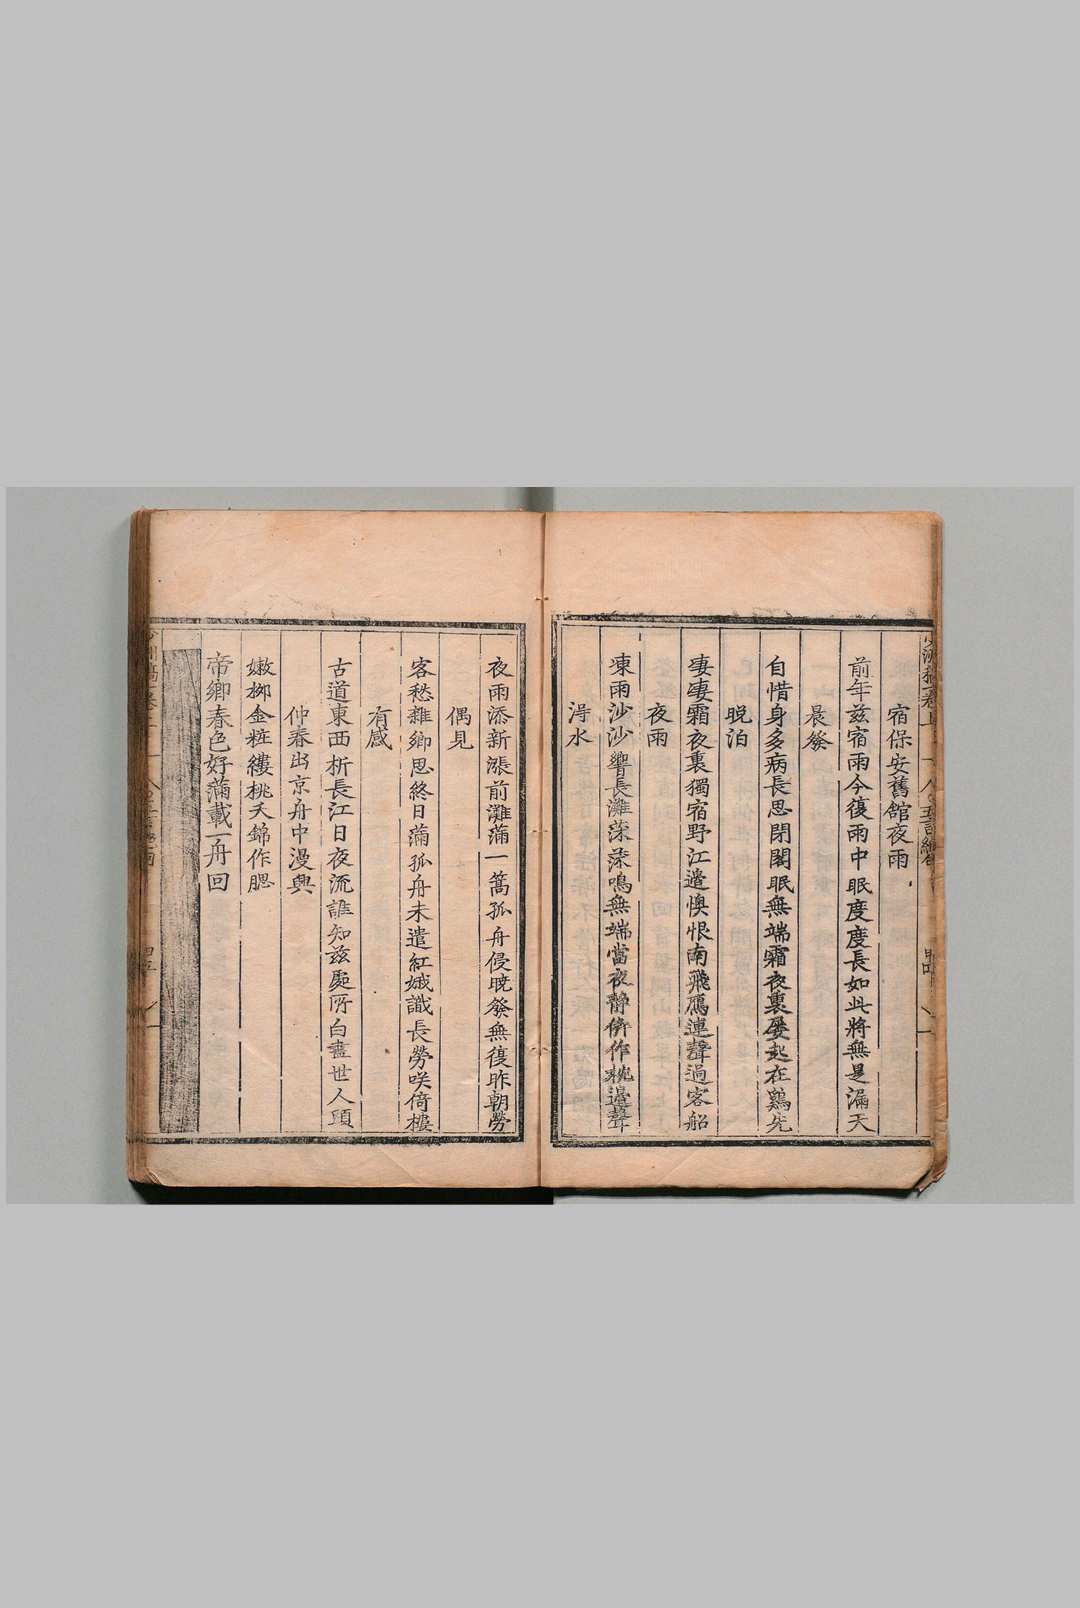 宿保安舊舘夜雨
前年茲宿雨今復雨中眠度度長如此將無是漏天
晨發
自惜身多病長思閉閣眠無端霜夜裏屡起在鷄先
晚泊
凄凄霜夜裏獨宿野江邊懊恨南飛鴈連聲過客船
夜雨
凍雨沙沙響長灘深深鳴無端當夜靜併作枕邊聲
淂水
夜雨添新漲前灘蒲一篙孤舟侵曉發無復昨朝勞
偶見
客愁雜鄉思終日滿孤舟未遣紅娥識長勞咲倚樓
有感
古道東西析長江日夜流誰知茲處所白盡世人頭
仲春出京舟中漫興
嫩栁金粧縷桃夭錦作腮
帝鄉春色好滿載一舟回